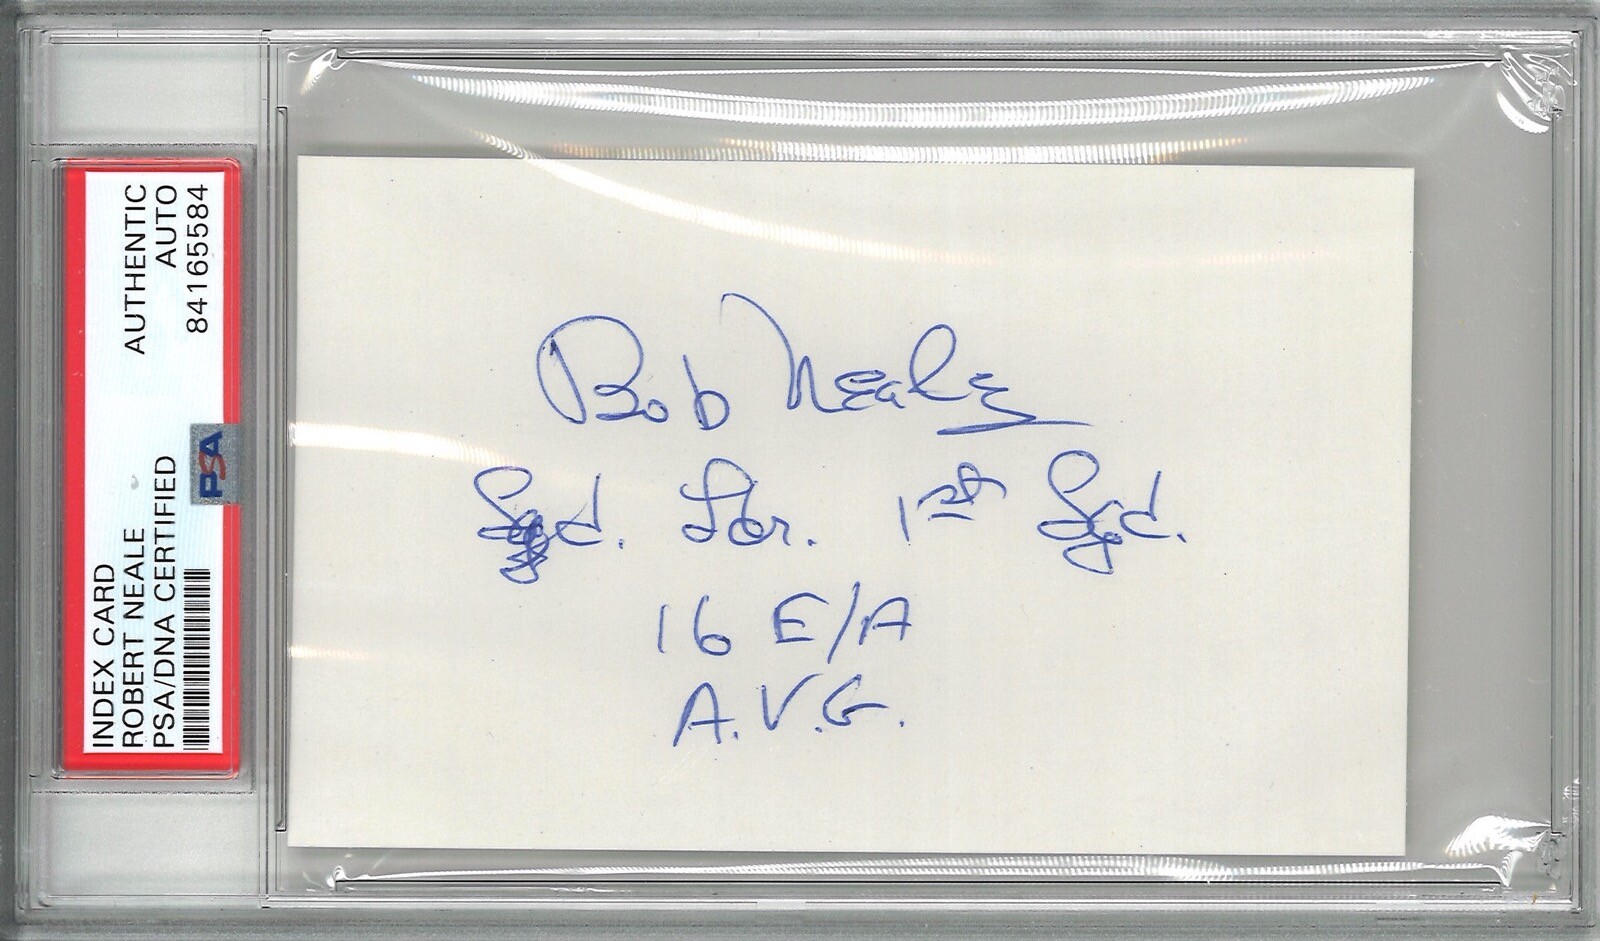 INDEX CARD
ROBERT NEALE
PSA/DNA CERTIFIED
AUTHENTIC
AUTO
84165584
PSA
Bob Neale
Sqd. Ldr. 1st Sqd.
16 E/A
A.V.G.